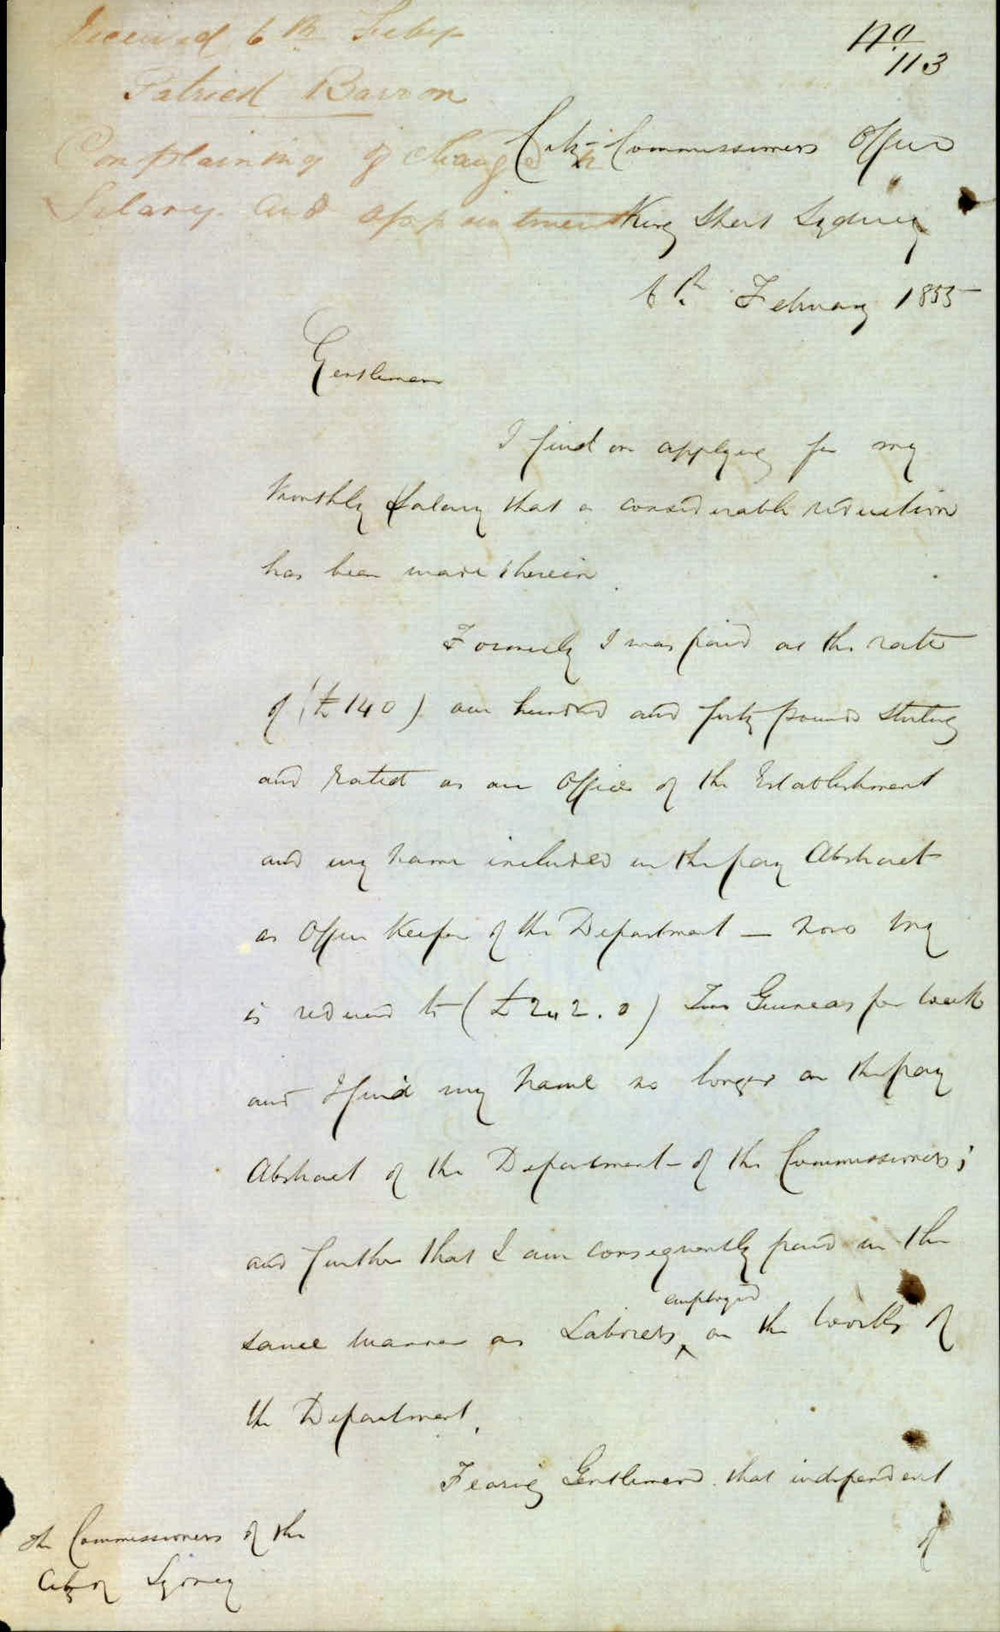 Received 6th Feby
Patrick Barron
Complaining of change in
Salary and appointment
No
113
City Commissioners Office
King Street Sydney
6th. February 1855
Gentlemen
I find on applying for my
Monthly Salary that a considerable reduction
has been made therein.
Formerly I was paid at the rate
of (£140) one hundred and forty pounds sterling
and rated as an Officer of the Establishment
and my name included in the pay Abstract
as Office Keeper of the Department — now my
is reduced to (£2..2.0) Two Guineas per week
and I find my name no longer on the pay
Abstract of the Department of the Commissioners;
and further that I am consequently paid in the
same manner as Laborers employed on the works of
the Department.
Fearing Gentlemen that independent
of
The Commissioners of the
City of Sydney